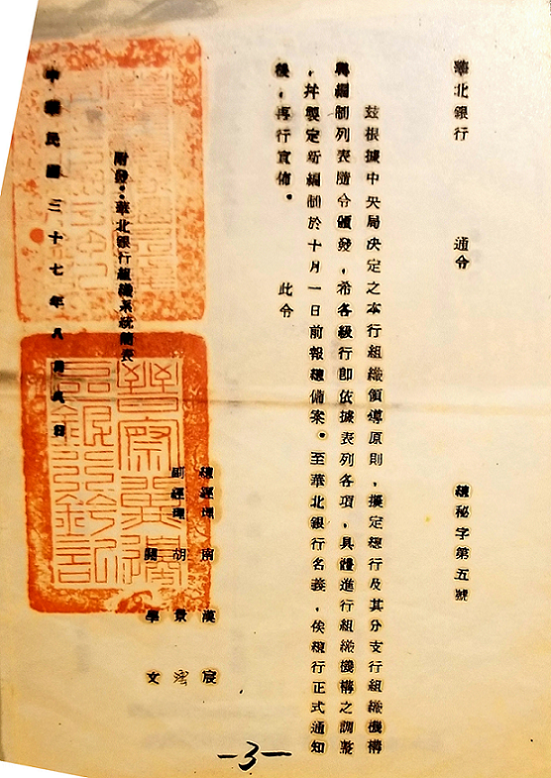 華北銀行　通令　總秘字第五號
茲根據中央局決定之本行組織領導原則，擬定總行及其分支行組織機構
與編制列表隨令頒發，希各級行即依據表列各項，具體進行組織機構之調整
，并製定新編制於十月一日前報總備案。至華北銀行名義，俟總行正式通知
後，再行宣佈。
此令
總經理　南漢宸
副經理　胡景澐
關學文
附發：華北銀行組織系統簡表
中華民國三十七年八月　日
晉察冀邊
區銀行鈐記
-3-